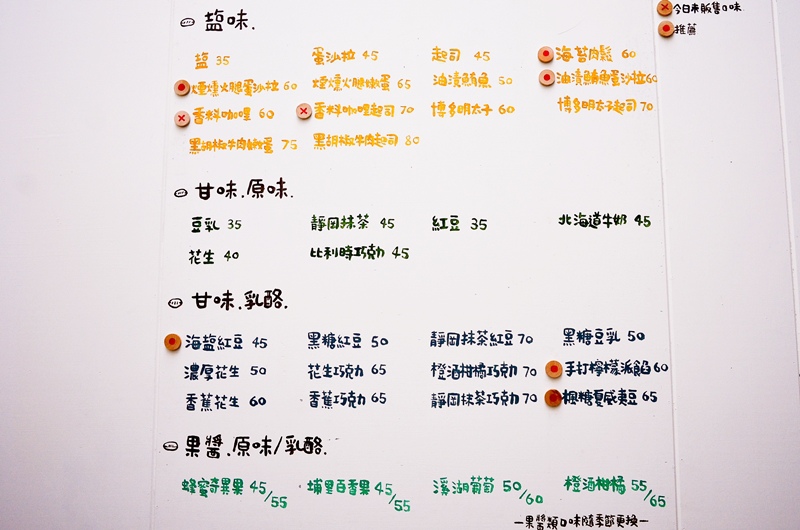 今日未販售口味
推薦
鹽味.
鹽 35 蛋沙拉 45 起司 45 海苔肉鬆 60
煙燻火腿蛋沙拉 60 煙燻火腿嫩蛋 65 油漬鮪魚 50 油漬鮪魚蛋沙拉60
香料咖哩 60 香料咖哩起司 70 博多明太子 60 博多明太子起司 70
黑胡椒牛肉嫩蛋 75 黑胡椒牛肉起司 80
甘味.原味.
豆乳 35 靜岡抹茶 45 紅豆 35 北海道牛奶 45
花生 40 比利時巧克力 45
甘味.乳酪.
海鹽紅豆 45 黑糖紅豆 50 靜岡抹茶紅豆 70 黑糖豆乳 50
濃厚花生 50 花生巧克力 65 橙酒柑橘巧克力 70 手打檸檬派餡 60
香蕉花生 60 香蕉巧克力 65 靜岡抹茶巧克力 70 楓糖夏威夷豆 65
果醬.原味/乳酪.
蜂蜜奇異果 45/55 埔里百香果 45/55 溪湖葡萄 50/60 橙酒柑橘 55/65
—果醬類口味隨季節更換—